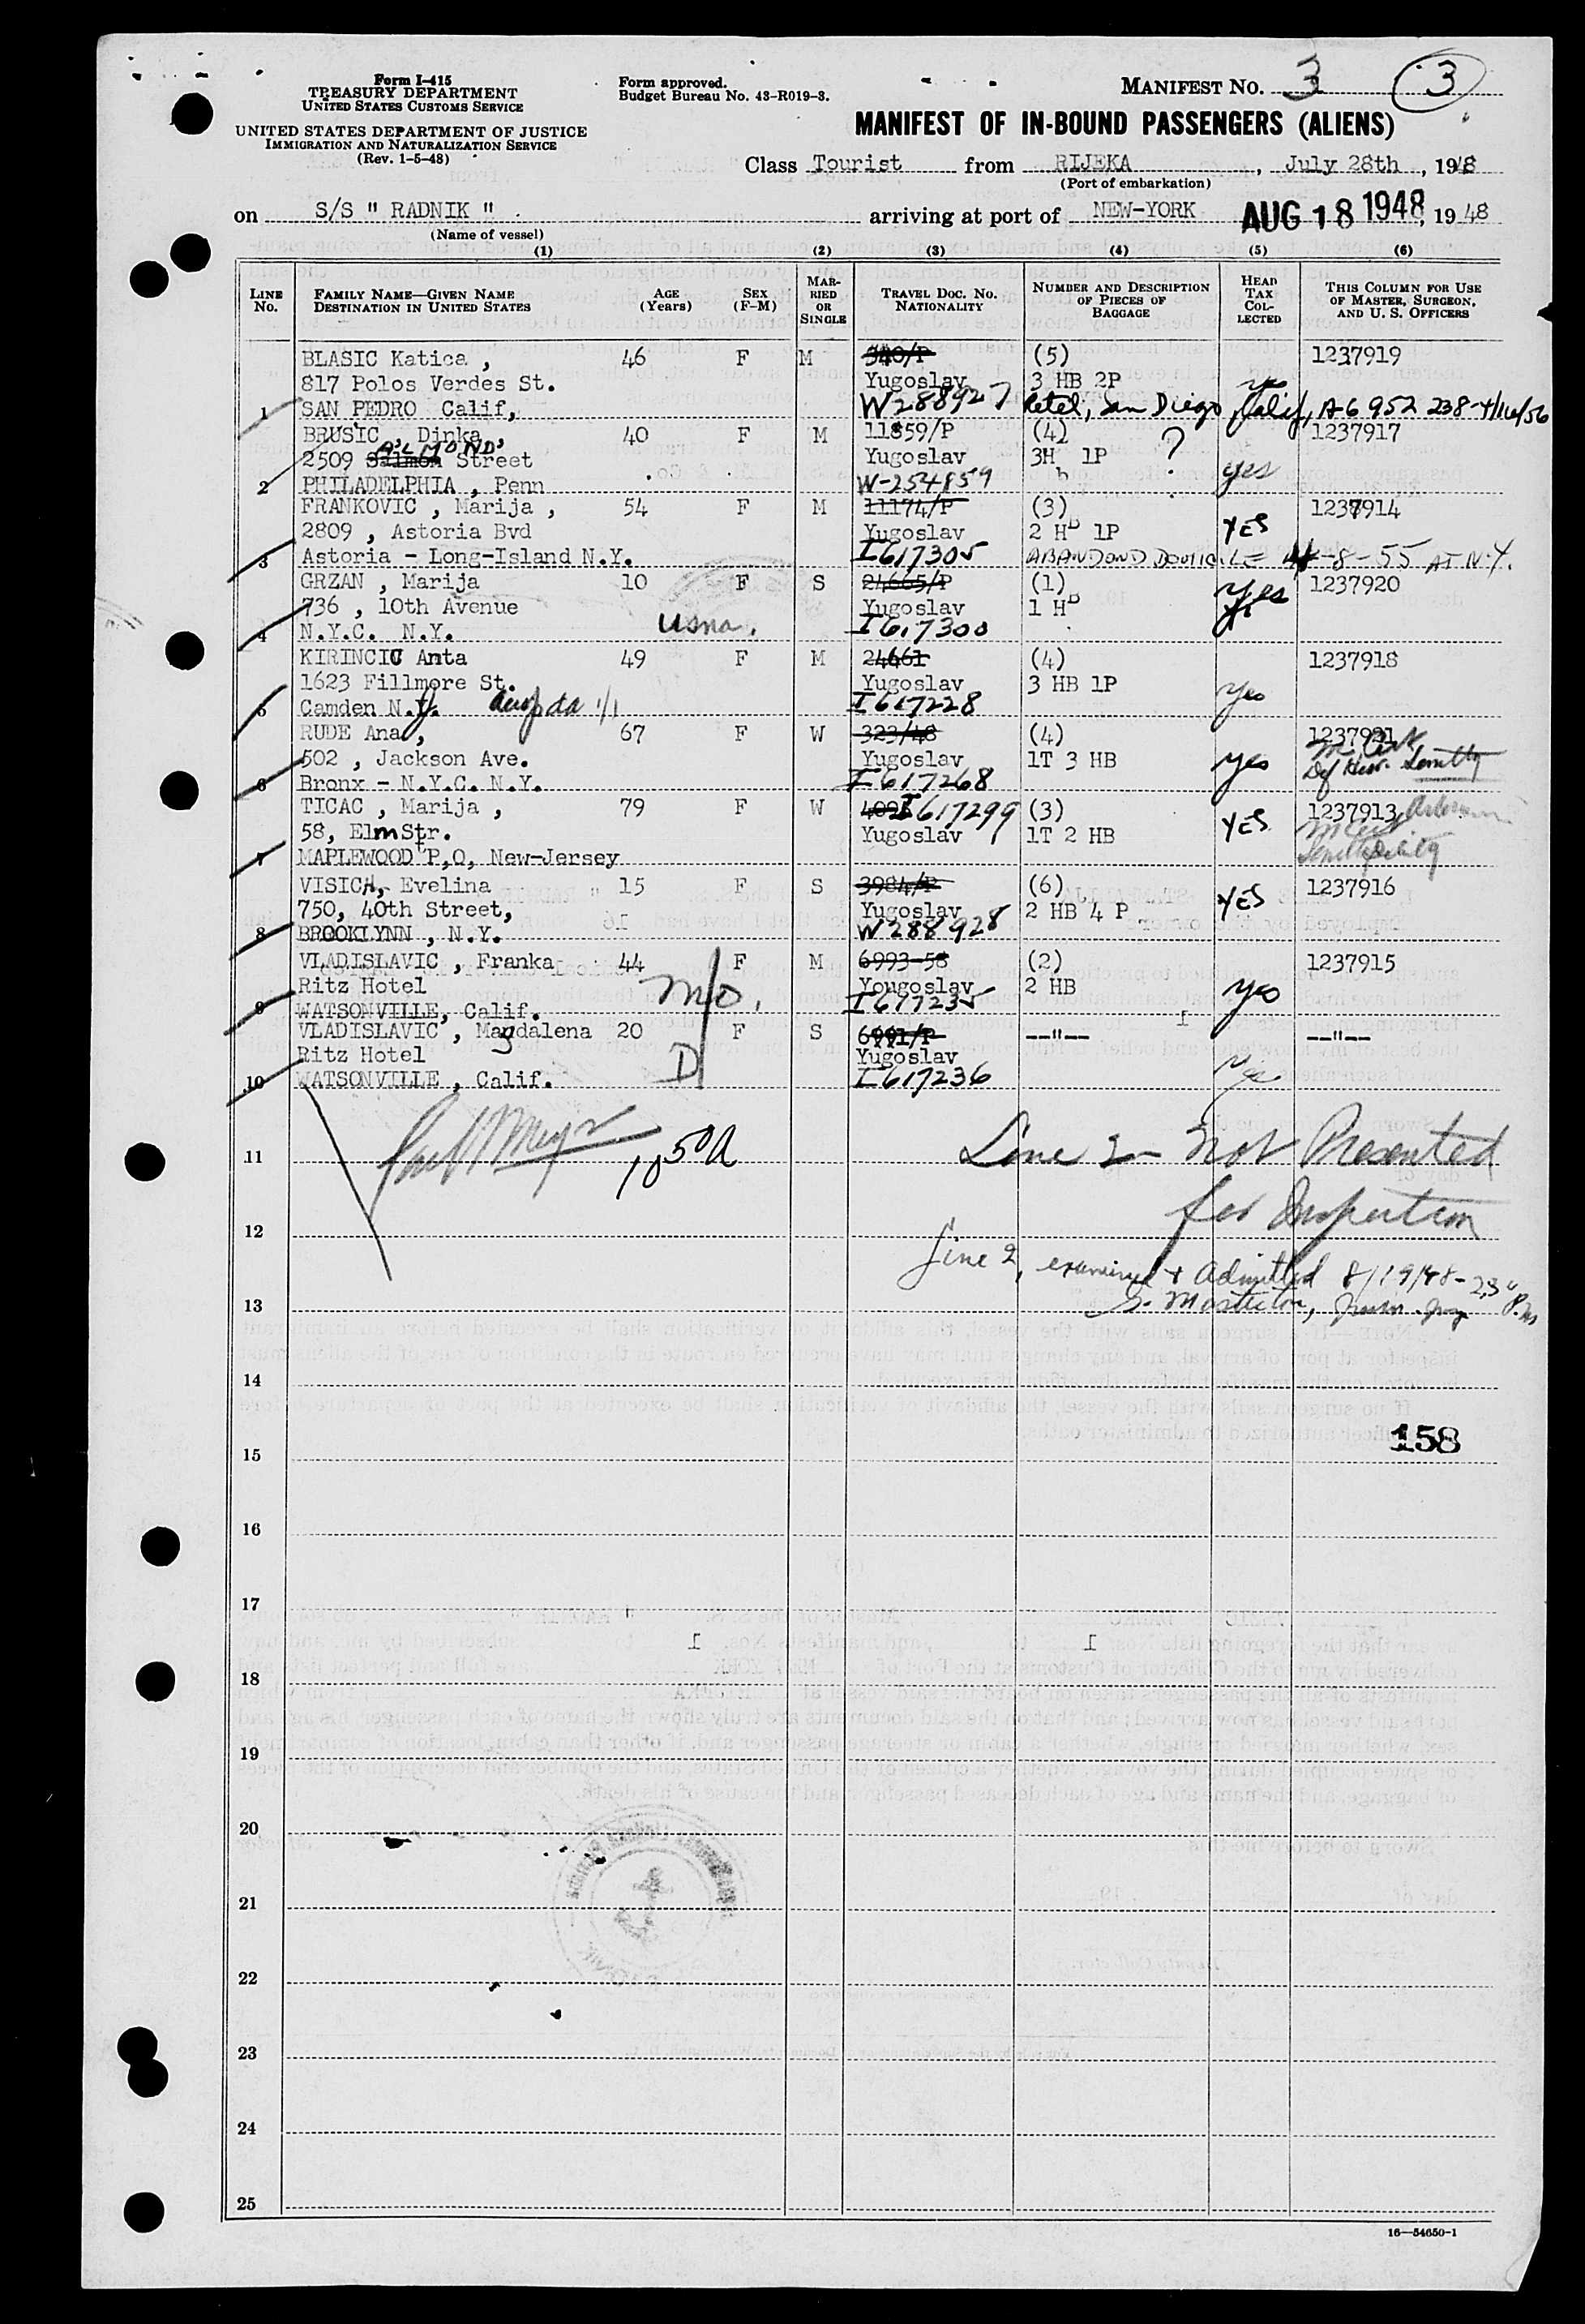 Form I-415
TREASURY DEPARTMENT
UNITED STATES CUSTOMS SERVICE
UNITED STATES DEPARTMENT OF JUSTICE
IMMIGRATION AND NATURALIZATION SERVICE
(Rev. 1-5-48)
Form approved.
Budget Bureau No. 43-R019-3.
MANIFEST NO. 3 3
MANIFEST OF IN-BOUND PASSENGERS (ALIENS)
Class Tourist from RIJEKA, July 28th, 1948
(Port of embarkation)
on S/S " RADNIK " arriving at port of NEW-YORK AUG 18 1948, 1948
(Name of vessel)
(1) (2) (3) (4) (5) (6)
LINE NO. FAMILY NAME—GIVEN NAME DESTINATION IN UNITED STATES AGE (YEARS) SEX (F-M) MARRIED OR SINGLE TRAVEL DOC. NO. NATIONALITY NUMBER AND DESCRIPTION OF PIECES OF BAGGAGE HEAD TAX COLLECTED THIS COLUMN FOR USE OF MASTER, SURGEON, AND U. S. OFFICERS
BLASIC Katica , 46 F M 340/P (5) 1237919
817 Polos Verdes St. Yugoslav 3 HB 2P yes
1 SAN PEDRO Calif, W288927 Retel, San Diego, Calif, A6 952 238-4/16/56
BRUSIC , Dinka, 40 F M 11859/P (4) 1237917
2509 Salmon ALMOND Street Yugoslav 3H b 1P ? yes
2 PHILADELPHIA , Penn W-254859
FRANKOVIC , Marija , 54 F M 11174/P (3) 1237914
2809 , Astoria Bvd Yugoslav 2 HB 1P YES
3 Astoria - Long-Island N.Y. I617305 ABANDOND DOMICILE 4-8-55 AT N.Y.
GRZAN , Marija 10 F S 24665/P (1) 1237920
736 , 10th Avenue Yugoslav 1 HB Yes
4 N.Y.C. N.Y. usna. I617300
KIRINCIC Anta 49 F M 24661 (4) 1237918
1623 Fillmore St. Yugoslav 3 HB 1P yes
5 Camden N.J. I617228
RUDE Ana , 67 F W 323/48 (4) 1237921
502 , Jackson Ave. Yugoslav 1T 3 HB yes
6 Bronx - N.Y.C. N.Y. I617268
TICAC , Marija , 79 F W I617299 (3) 1237913
58, Elm Str. Yugoslav 1T 2 HB YES
7 MAPLEWOOD P,O, New-Jersey
VISICH, Evelina 15 F S 3984/P (6) 1237916
750, 40th Street, Yugoslav 2 HB 4 P YES
8 BROOKLYNN , N.Y. W288928
VLADISLAVIC , Franka 44 F M 6993-58 (2) 1237915
Ritz Hotel Yougoslav 2 HB yes
9 WATSONVILLE, Calif. I617235
VLADISLAVIC , Magdalena 20 F S 6991/P —"— —"—
Ritz Hotel D Yugoslav
10 WATSONVILLE , Calif. I617236
11 10 50A Line 2 - Not Presented
12 for Inspection
Line 2, examined & Admitted 8/19/48 -
13
14
158
15
16
17
18
19
20
21
22
23
24
25
16—54650-1